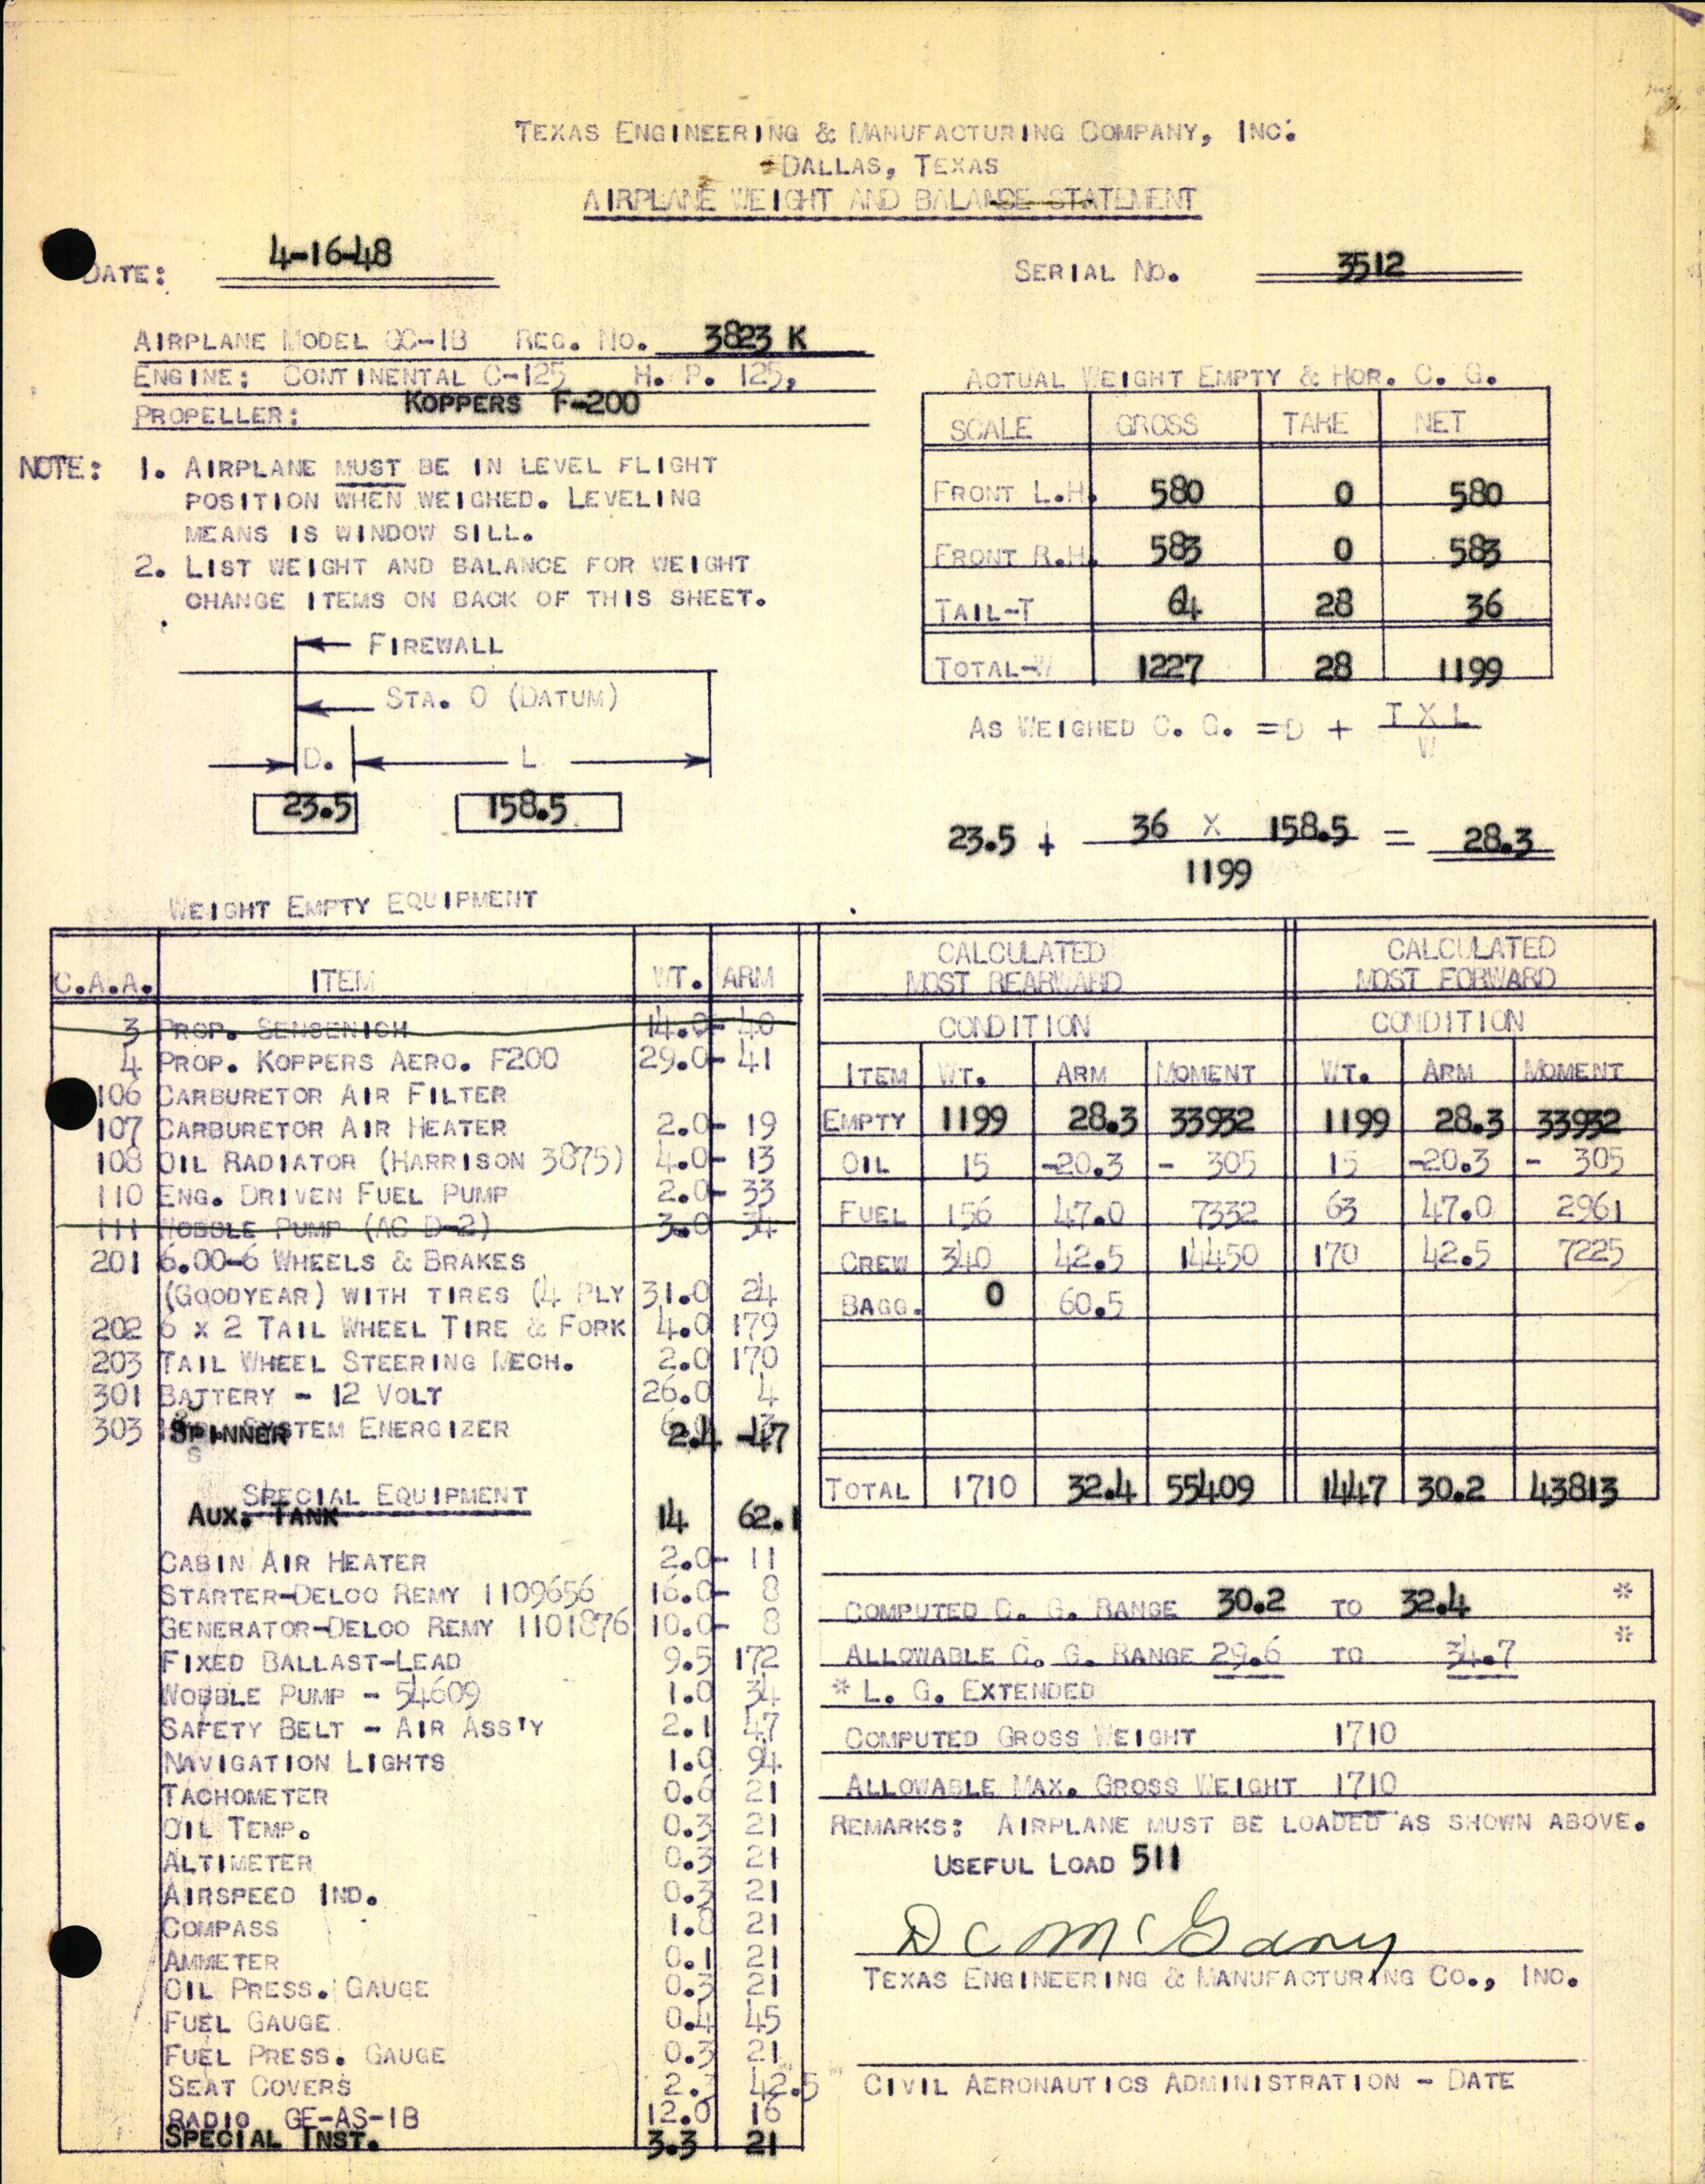 TEXAS ENGINEERING & MANUFACTURING COMPANY, INC.
DALLAS, TEXAS
AIRPLANE WEIGHT AND BALANSE STATEMENT
DATE: 4-16-48
SERIAL NO. 3512
AIRPLANE MODEL GC-1B REG. NO. 3823 K
ENGINE: CONTINENTAL C-125 H. P. 125,
PROPELLER: KOPPERS F-200
NOTE: 1. AIRPLANE MUST BE IN LEVEL FLIGHT
POSITION WHEN WEIGHED. LEVELING
MEANS IS WINDOW SILL.
2. LIST WEIGHT AND BALANCE FOR WEIGHT
CHANGE ITEMS ON BACK OF THIS SHEET.
FIREWALL
STA. 0 (DATUM)
D. L
23.5 158.5
ACTUAL WEIGHT EMPTY & HOR. C. G.
SCALE GROSS TARE NET
FRONT L.H. 580 0 580
FRONT R.H. 583 0 583
TAIL-T 64 28 36
TOTAL-W 1227 28 1199
AS WEIGHED C. G. = D + T X L
W
23.5 + 36 X 158.5 = 28.3
1199
WEIGHT EMPTY EQUIPMENT
C.A.A. ITEM WT. ARM
3 PROP. SENSENICH 14.0 - 40
4 PROP. KOPPERS AERO. F200 29.0 - 41
106 CARBURETOR AIR FILTER
107 CARBURETOR AIR HEATER 2.0 - 19
108 OIL RADIATOR (HARRISON 3875) 4.0 - 13
110 ENG. DRIVEN FUEL PUMP 2.0 - 33
111 WOBBLE PUMP (AC D-2) 3.0 34
201 6.00-6 WHEELS & BRAKES
(GOODYEAR) WITH TIRES (4 PLY 31.0 24
202 6 X 2 TAIL WHEEL TIRE & FORK 4.0 179
203 TAIL WHEEL STEERING MECH. 2.0 170
301 BATTERY - 12 VOLT 26.0 4
303 SYSTEM ENERGIZER
SPINNER 2.4 -47
SPECIAL EQUIPMENT
AUX. TANK 14 62.1
CABIN AIR HEATER 2.0 - 11
STARTER-DELCO REMY 1109656 16.0 - 8
GENERATOR-DELCO REMY 1101876 10.0 - 8
FIXED BALLAST-LEAD 9.5 172
WOBBLE PUMP - 54609 1.0 34
SAFETY BELT - AIR ASS'Y 2.1 47
NAVIGATION LIGHTS 1.0 94
TACHOMETER 0.6 21
OIL TEMP. 0.3 21
ALTIMETER 0.3 21
AIRSPEED IND. 0.3 21
COMPASS 1.8 21
AMMETER 0.1 21
OIL PRESS. GAUGE 0.3 21
FUEL GAUGE 0.4 45
FUEL PRESS. GAUGE 0.3 21
SEAT COVERS 42.5
RADIO GE-AS-1B 12.0 16
SPECIAL INST. 3.3 21
CALCULATED MOST REARWARD CALCULATED MOST FORWARD
CONDITION CONDITION
ITEM WT. ARM MOMENT WT. ARM MOMENT
EMPTY 1199 28.3 33932 1199 28.3 33932
OIL 15 -20.3 - 305 15 -20.3 - 305
FUEL 156 47.0 7332 63 47.0 2961
CREW 340 42.5 14450 170 42.5 7225
BAGG. 0 60.5
TOTAL 1710 32.4 55409 1447 30.2 43813
COMPUTED C. G. RANGE 30.2 TO 32.4 *
ALLOWABLE C. G. RANGE 29.6 TO 34.7 *
* L. G. EXTENDED
COMPUTED GROSS WEIGHT 1710
ALLOWABLE MAX. GROSS WEIGHT 1710
REMARKS: AIRPLANE MUST BE LOADED AS SHOWN ABOVE.
USEFUL LOAD 511
D C McGary
TEXAS ENGINEERING & MANUFACTURING CO., INC.
CIVIL AERONAUTICS ADMINISTRATION - DATE